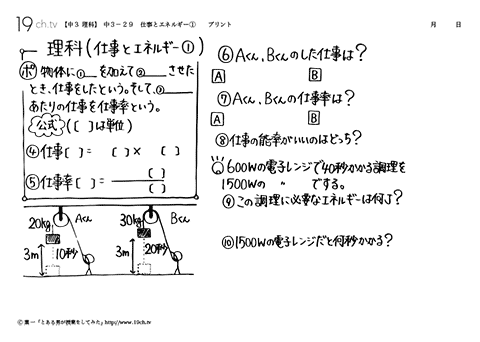 19ch.tv 【中3 理科】 中3-29 仕事とエネルギー① プリント 月 日
理科(仕事とエネルギー①)
ポ 物体に①__を加えて②__させた
とき、仕事をしたという。そして、③__
あたりの仕事を仕事率という。
公式 ([ ]は単位)
④仕事[ ]= [ ]× [ ]
⑤仕事率[ ]= [ ]
[ ]
20kg Aくん 30kg Bくん
3m 10秒 3m 20秒
⑥Aくん、Bくんのした仕事は?
A B
⑦Aくん、Bくんの仕事率は?
A B
⑧仕事の能率がいいのはどっち?
600Wの電子レンジで40秒かかる調理を
1500Wの 〃 でする。
⑨この調理に必要なエネルギーは何J?
⑩1500Wの電子レンジだと何秒かかる?
Ⓒ葉一「とある男が授業をしてみた」http://www.19ch.tv